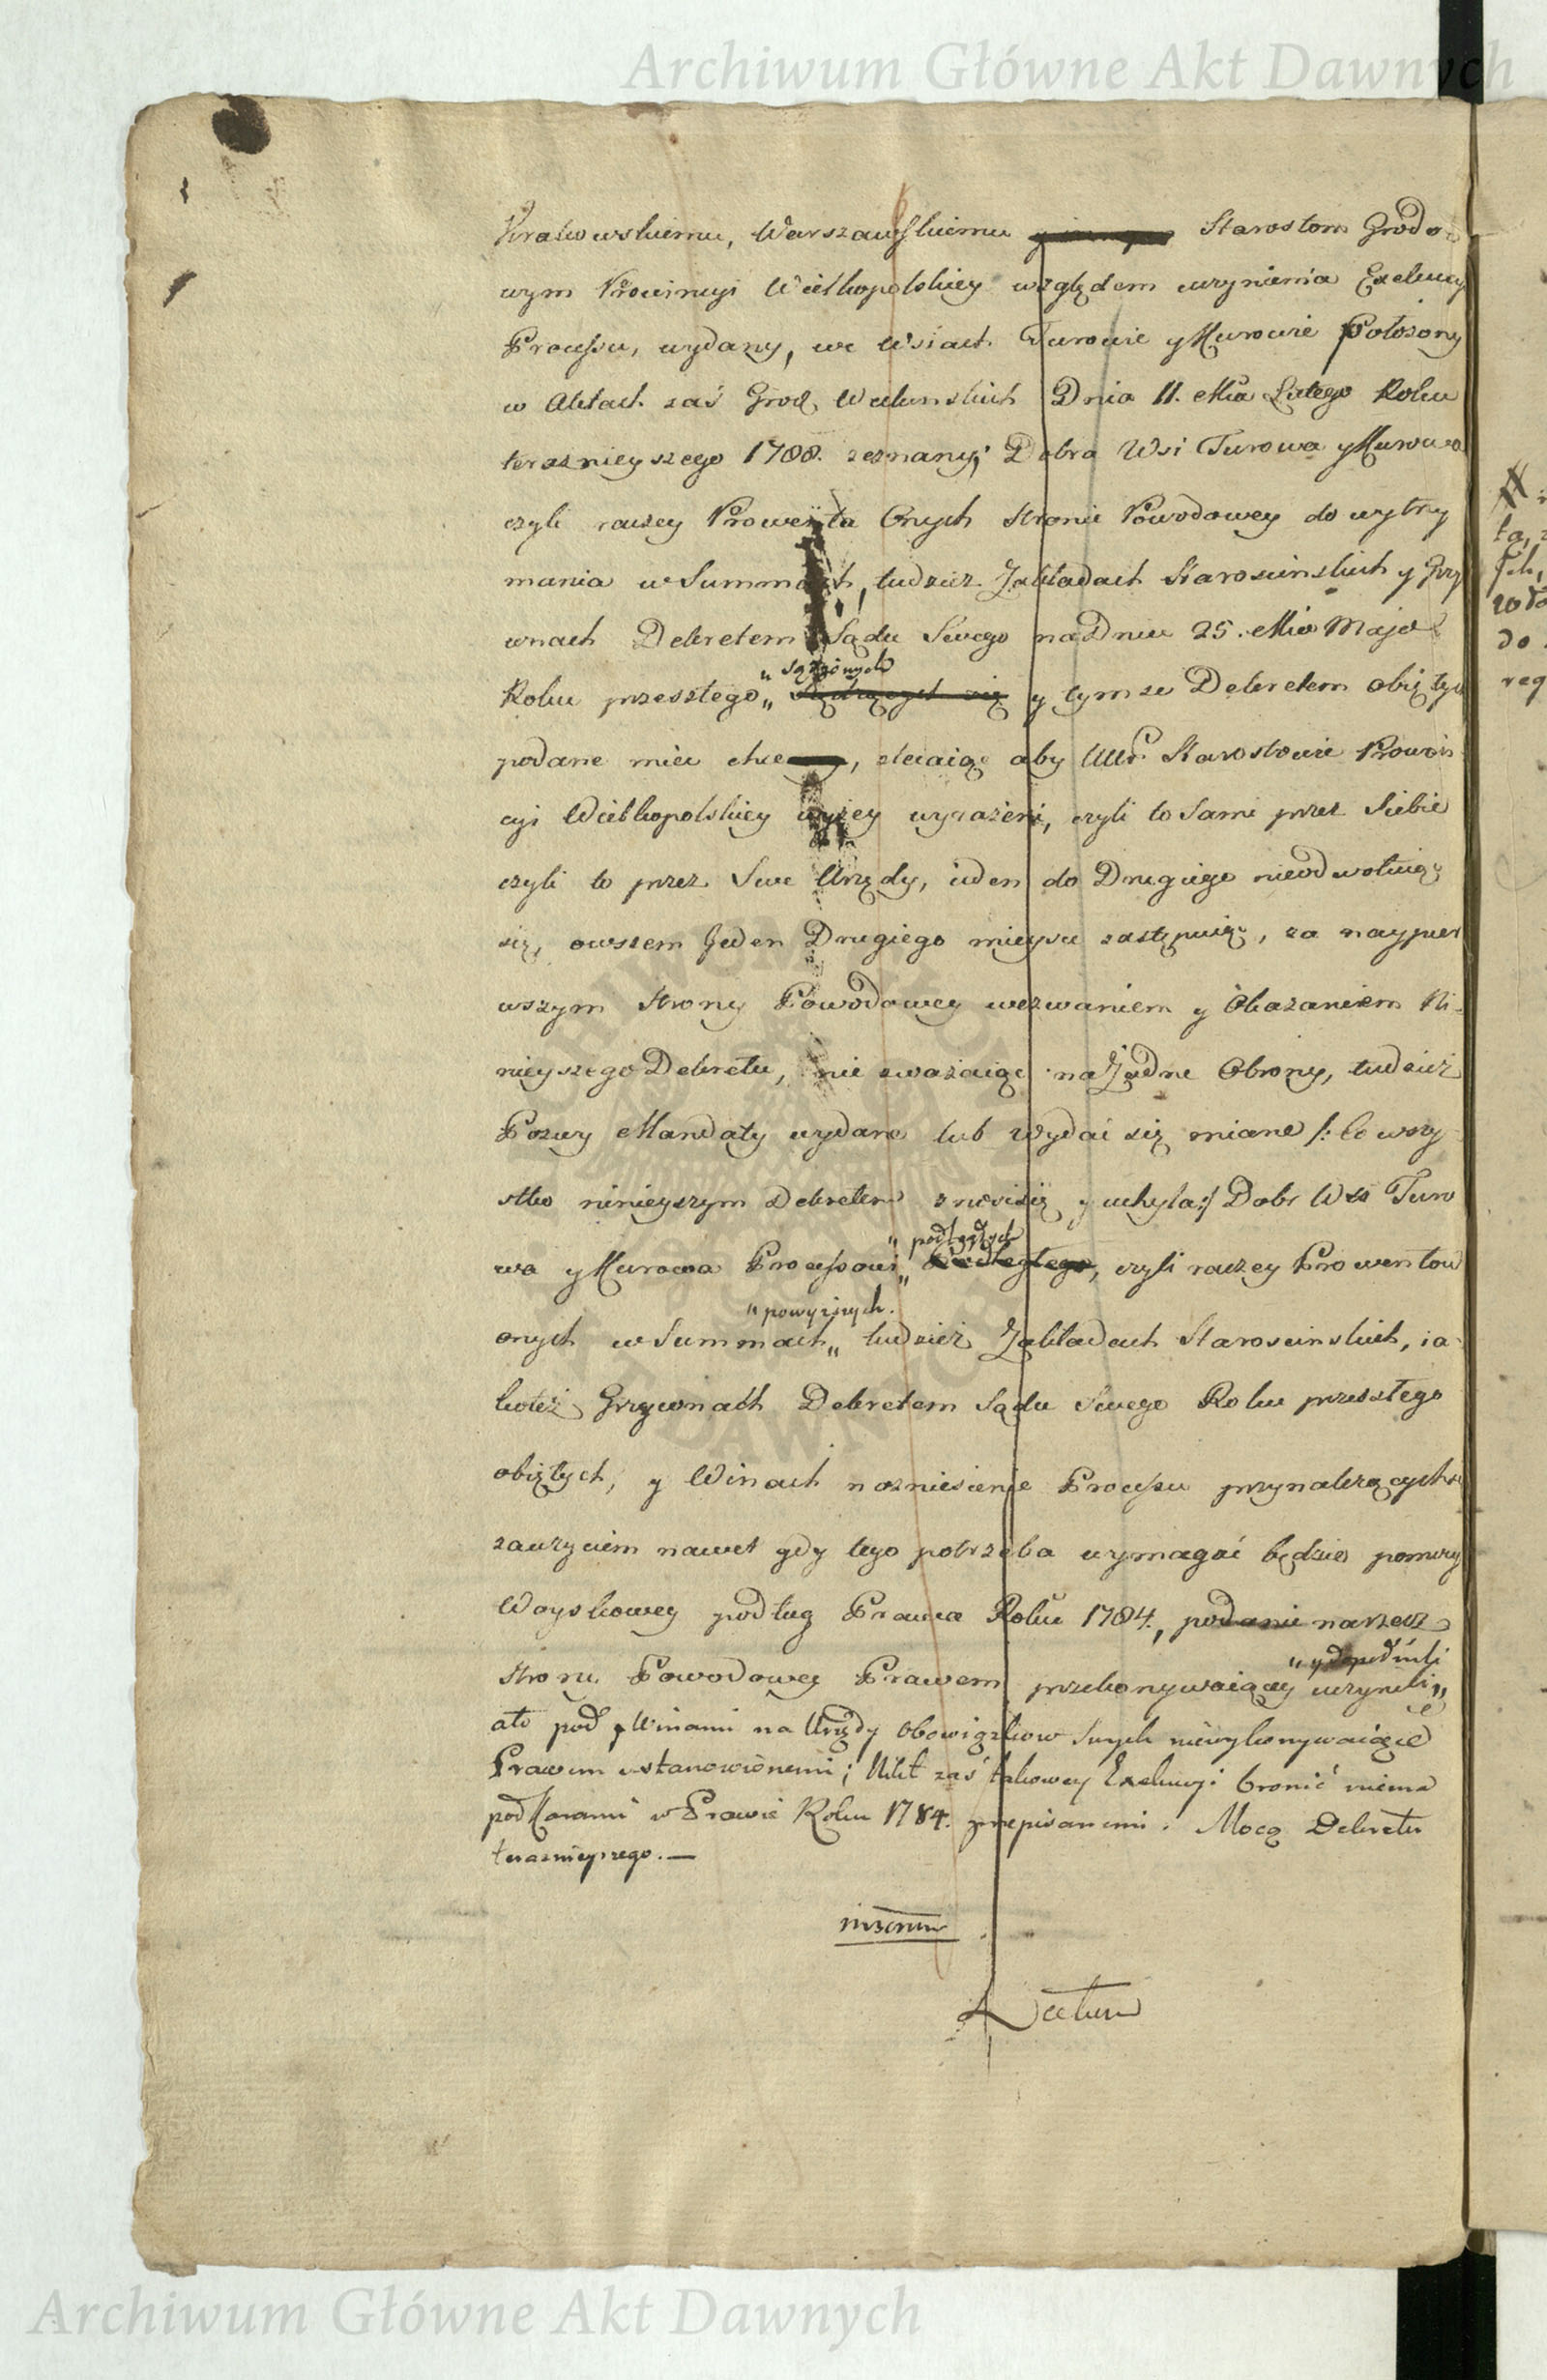 Archiwum Główne Akt Dawnych
Krakowskiemu, Warszawskiemu Starostom Grodo-
wym Prowincyi Wielkopolskiey względem uczynienia Exekucyi
Processu, wydany, we Wsiach Turowie y Kurowie Położony
w Aktach zaś Grod. Wieluńskich Dnia 11. Mca Lutego Roku
teraznieyszego 1788. zeznany; Dobra Wsi Turowa y Kurowa
czyli raczey Prowenta Onych stronie Powodowey do wytrzy
mania w Summach, tudzież Zakładach Starościnskich y Grzy
wnach Dekretem Sądu Swego na Dniu 25. Mca Maja
" sądzonych
Roku przeszłego „ y tymże Dekretem obiętych
podane mieć chce, zlecaiąc aby UUr. Starostowie Prowin
cyi Wielkopolskiey wyżey wyrażeni, czyli to Sami przez Siebie
czyli to przez Swe Urzędy, ieden do Drugiego nieodwołuiąc
się, owszem Jeden Drugiego mieysce zastępuiąc, za naypier
wszym strony Powodowey wezwaniem y Okazaniem Ni-
nieyszego Dekretu, nie zważaiąc na Żadne Obrony, tudzież
Pozwy Mandaty wydane lub wydać się miane /: co wszy
stko ninieyszym Dekretem znosi się y uchyla :/ Dobr Wsi Turo
" podległych
wa y Kurowa Processowi „ , czyli raczey Prowentow
" powyższych.
onych w Summach „ tudzież Zakładach Starościnskich, ia-
koteż Grzywnach Dekretem Sądu Swego Roku przeszłego
obiętych, y Winach na zniesienie Processu przynależących z
zażyciem nawet gdy tego potrzeba wymagać będzie pomocy
Woyskowey podług Prawa Roku 1784., podanie na rzecz
" y dopełnili
strony Powodowey Prawem przekonywaiącey uczynili „
a to pod Winami na Urzędy obowiązkow swych niewykonywaiące
Prawem ustanowionemi; Nikt zaś takowey Exekucyi bronić niema
pod Karami w Prawie Roku 1784. przepisanemi. Mocą Dekretu
teraznieyszego. —
Archiwum Główne Akt Dawnych